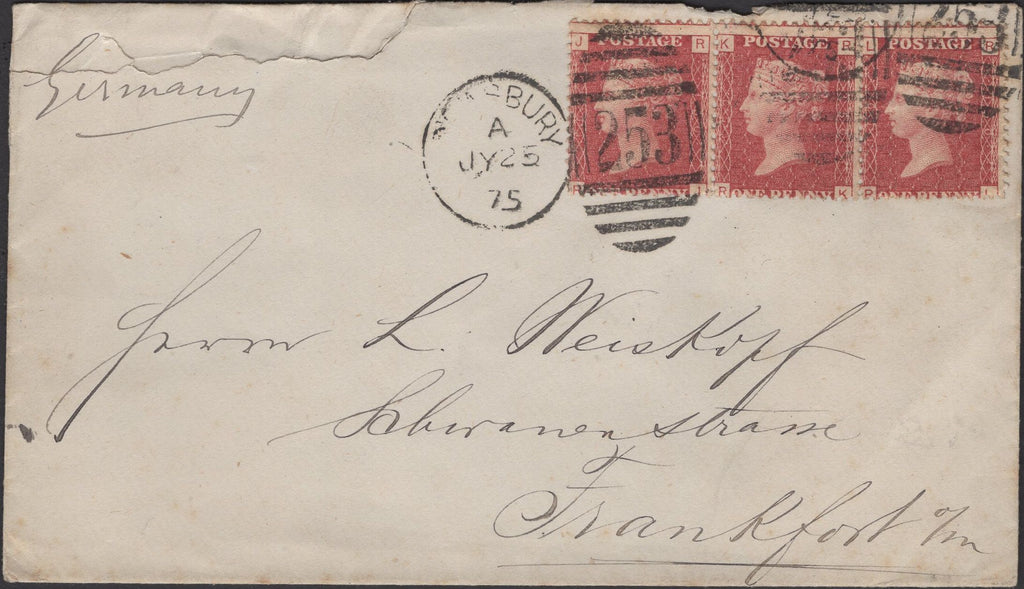 Germany
A
JY 25
75
253
J POSTAGE R
K POSTAGE R
L POSTAGE R
R ONE PENNY J
R ONE PENNY K
R ONE PENNY L
Herrn L. Weiskopf
Schwanenstrasse
Frankfort o/m